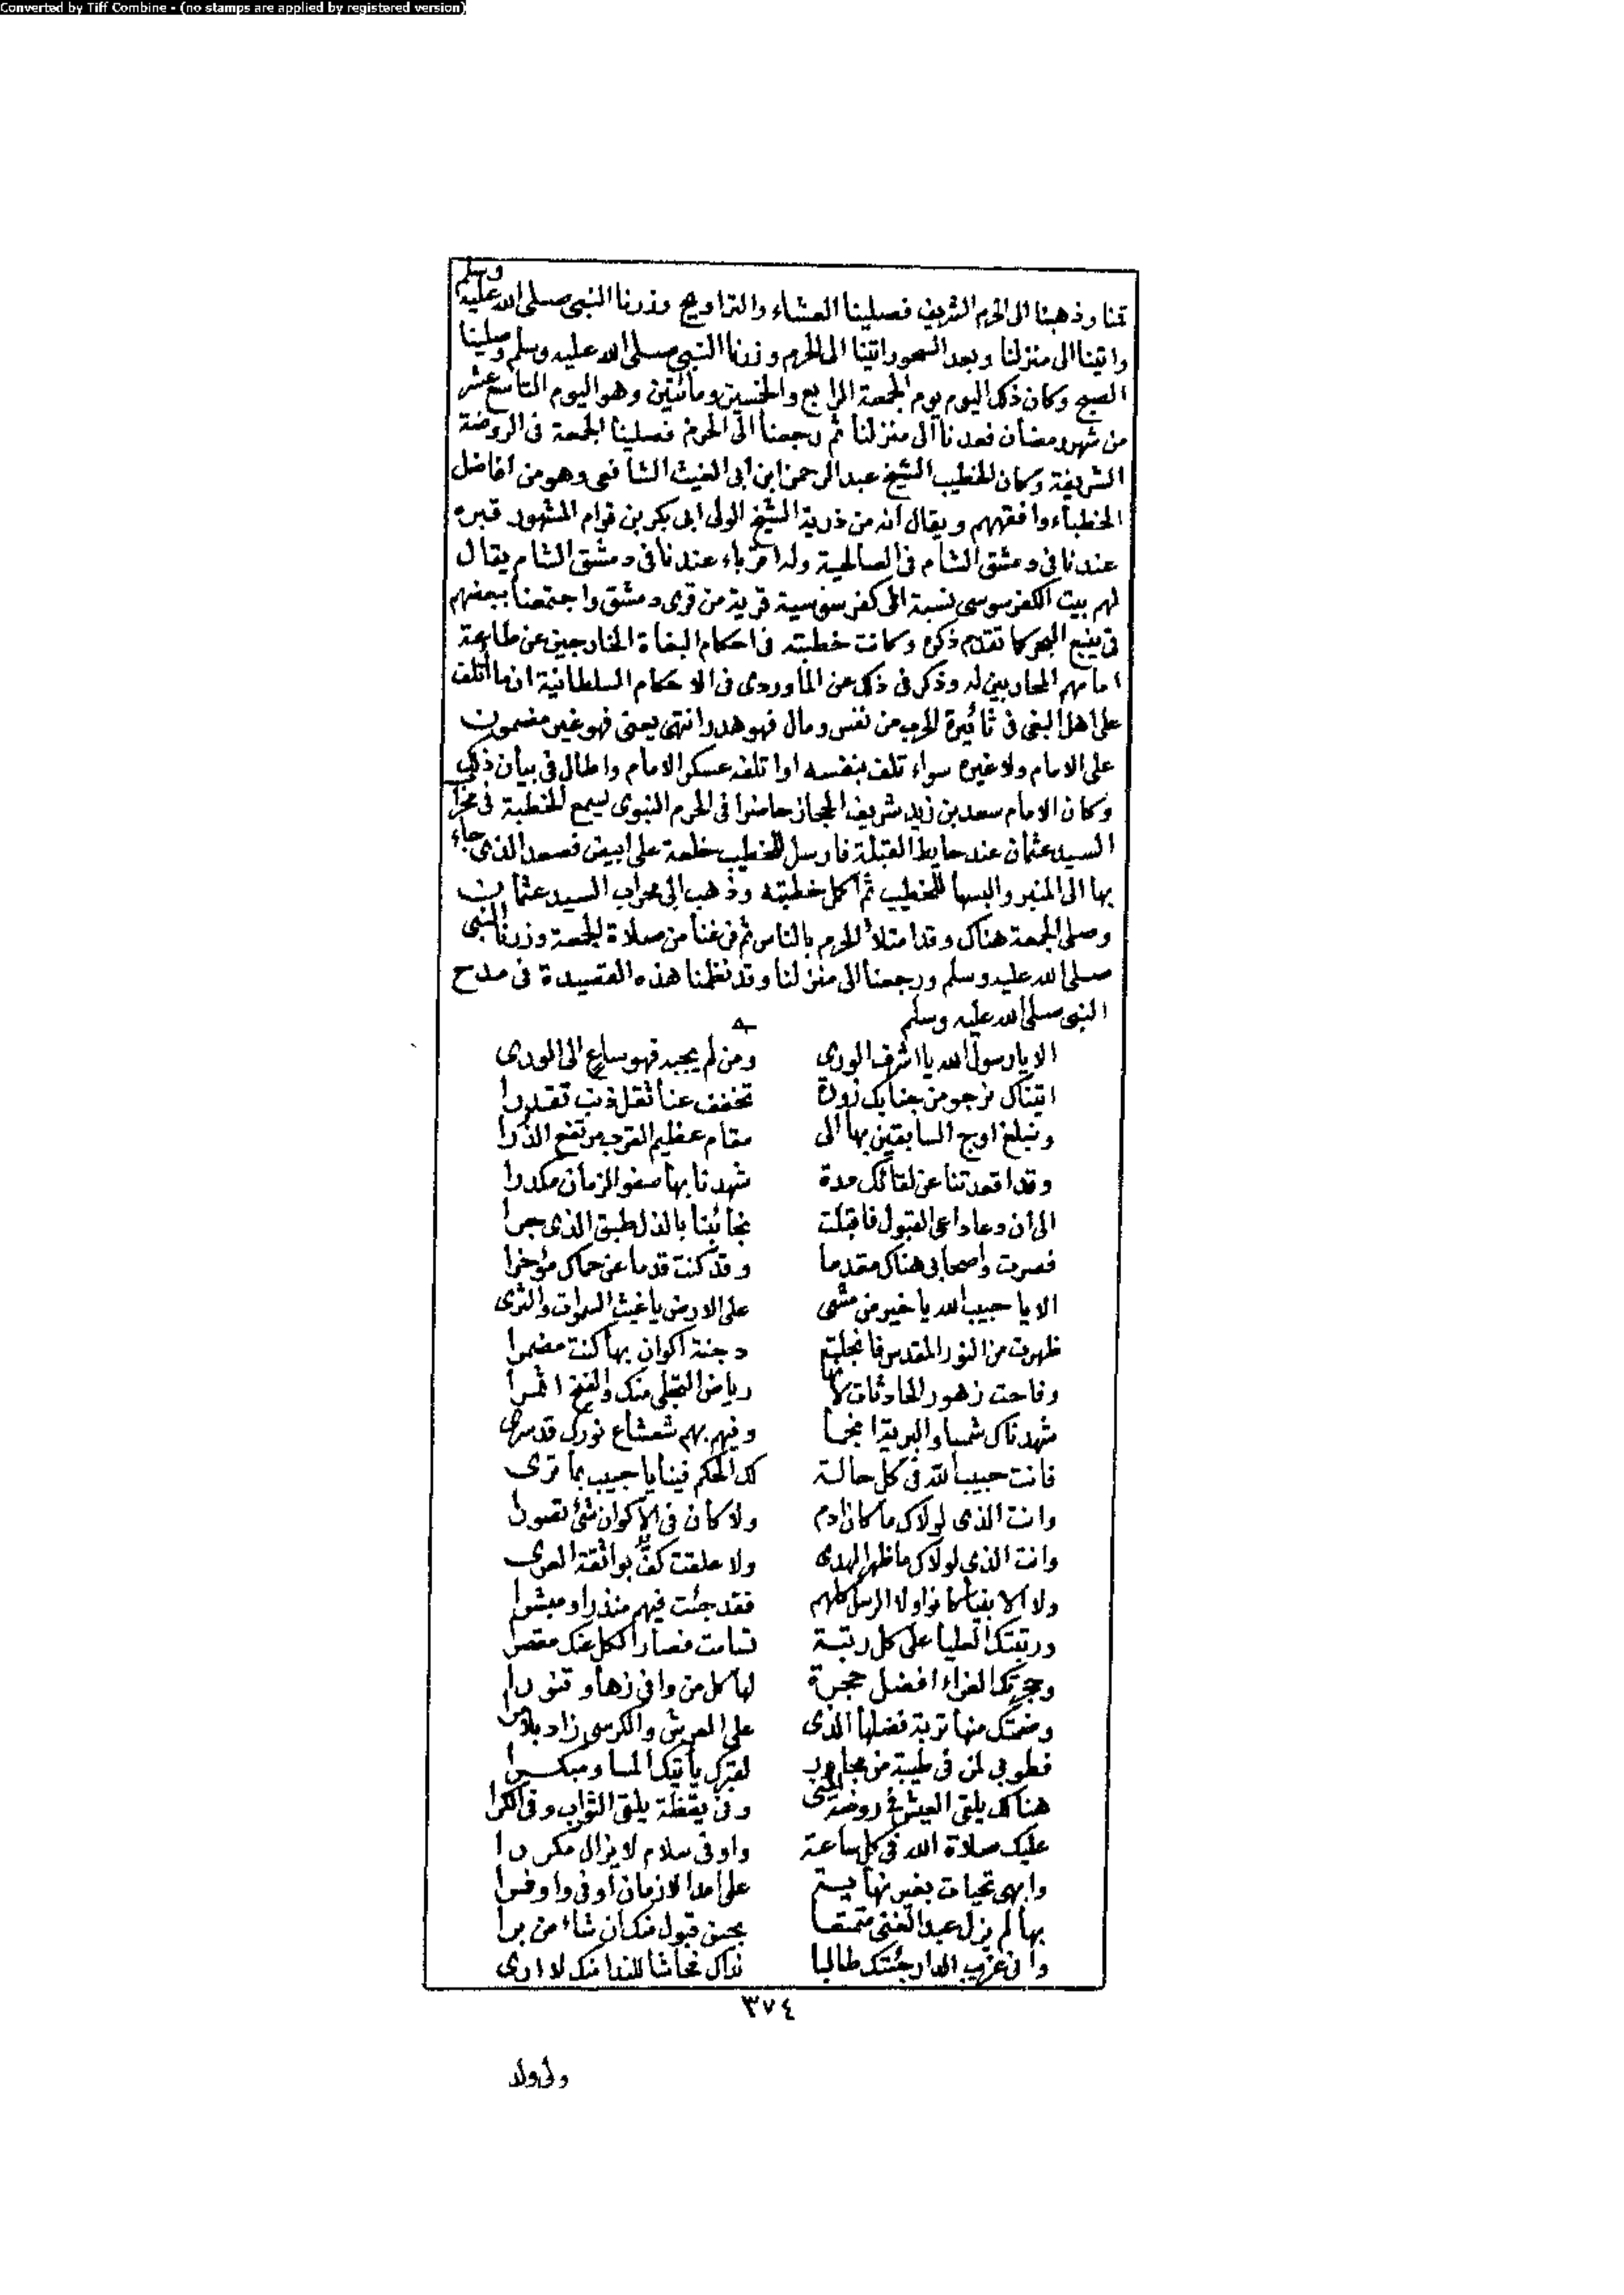 Converted by Tiff Combine - (no stamps are applied by registered version)
قمنا وذهبنا الى الحرم الشريف فصلينا العشاء والتراويح وزرنا النبى صلى الله عليه وسلم
واتينا الى منزلنا وبعد السحور اتينا الى الحرم وزرنا النبى صلى الله عليه وسلم وصلينا
الصبح وكان ذلك اليوم يوم الجمعة الرابع والخمسين ومائتين وهو اليوم التاسع عشر
من شهر رمضان فعدنا الى منزلنا ثم رجعنا الى الحرم فصلينا الجمعة فى الروضة
الشريفة وكان الخطيب الشيخ عبد الرحمن ابن ابى الغيث الشافعى وهو من افاضل
الخطباء وافقههم ويقال انه من ذرية الشيخ الولى ابى بكر بن قوام المشهور قبره
عندنا فى دمشق الشام فى الصالحية وله اقرباء عندنا فى دمشق الشام يقال
لهم بيت الكفرسوسى نسبة الى كفرسوسية قرية من قرى دمشق واجتمعنا ببعضهم
فى ينبع البحر كما تقدم ذكره وكانت خطبته فى احكام البغاة الخارجين عن طاعة
امامهم المحاربين له وذكر فى ذلك عن الماوردى فى الاحكام السلطانية ان ما اتلف
على اهل البغى فى ثائرة الحرب من نفس ومال فهو هدر انتهى يعنى فهو غير مضمون
على الامام ولا غيره سواء تلف بنفسه او اتلفه عسكر الامام واطال فى بيان ذلك
وكان الامام سعد بن زيد شريف الحجاز حاضرا فى الحرم النبوى يسمع الخطبة فى محراب
السيد عثمان عند حايط القبلة فارسل للخطيب خلعة على ابيض فصعد الذى جاء
بها الى المنبر والبسها للخطيب ثم اكمل خطبته وذهب الى محراب السيد عثمان
وصلى الجمعة هناك وقد امتلأ الحرم بالناس ثم فرغنا من صلاة الجمعة وزرنا النبى
صلى الله عليه وسلم ورجعنا الى منزلنا وقد نظمنا هذه القصيدة فى مدح
النبى صلى الله عليه وسلم
الا يا رسول الله يا اشرف الورى ومن لم يجبه فهو ساع الى الورى
اتيناك نرجو من جنابك زورة تخفف عنا ثقل ذنب تقدرا
ونبلغ اوج السابقين بها الى مقام عظيم القرب مرتفع الذرا
وقد اقعدتنا عن لقائك مدة شهدنا بها صفو الزمان مكدرا
الى ان دعا داعى القبول فاقبلت نجائبنا بالذل طبق الذى جرا
فصرت واصحابى هناك مقدما وقد كنت قدما عن حماك مؤخرا
الا يا حبيب الله يا خير من مشى على الارض يا غيث السموات والثرى
ظهرت من النور المقدس فانجلت دجنة اكوان بها كنت مضمرا
وفاحت زهور الحادثات لانها رياض التجلى منك والفتح اثمرا
شهدناك شمسا والبرية انجما وفيهم بهم شعشاع نورك قد سرى
فانت حبيب الله فى كل حالة لك الحكم فينا يا حبيب بما ترى
وانت الذى لولاك ما كان ادم ولا كان فى الاكوان شئ تصورا
وانت الذى لولاك ما ظهر الهدى ولا علقت كف بواثقة العرى
ولا الانبيا كانوا ولا الرسل كلهم فقد جئت فيهم منذرا ومبشرا
ورتبتك العليا على كل رتبة تسامت فصار الكل عنك مقصرا
وحجرتك الغراء افضل حجرة لها كل من وافى زها وتنورا
وضمتك منها تربة فضلها الذى على العرش والكرسى زاد بلا مرا
فطوبى لمن فى طيبة من مجاور لقبرك يأتيك المسا ومبكرا
هنالك يلقى العيش فى روضة المنى وفى يقظة يلقى الثواب وفى الكرا
عليك صلاة الله فى كل ساعة واوفى سلام لا يزال مكررا
وابهى تحيات بغير نهاية على مدا الازمان اوفى واوفرا
بها لم يزل عبد الغنى متمتعا بحسن قبول منك ان شاء من برا
وانى غريب الدار جئتك طالبا نداك فحاشا للندا منك لا ارى
٣٧٤
ولى ولد